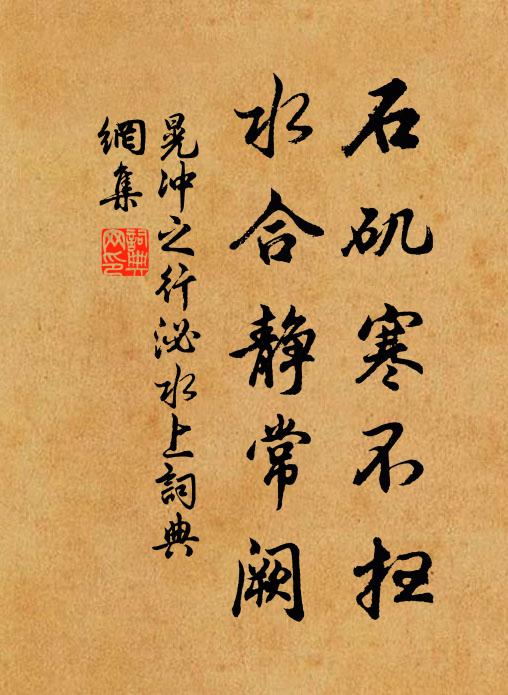 石矶寒不枉
水合静常阙
晁冲之行泌水上詞典
網集
詞典網印